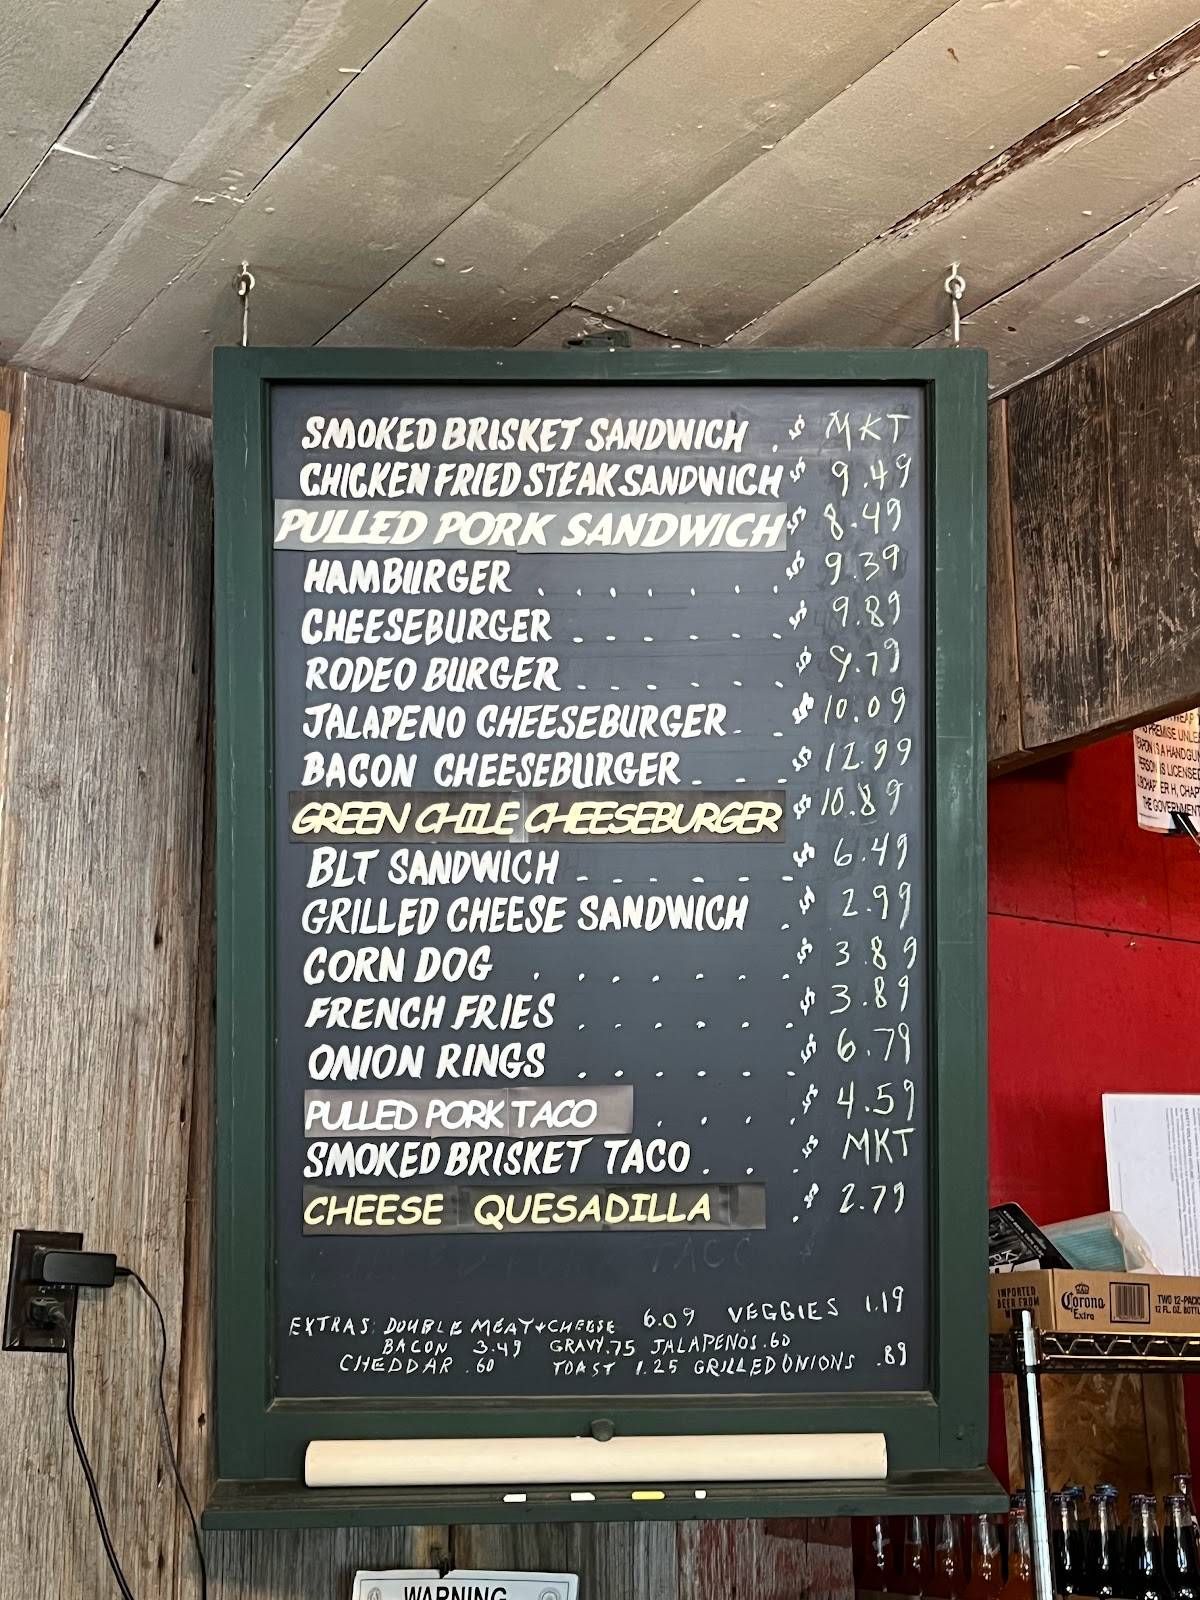 SMOKED BRISKET SANDWICH . $ MKT
CHICKEN FRIED STEAK SANDWICH $ 9.49
PULLED PORK SANDWICH $ 8.49
HAMBURGER . . . . . . $ 9.39
CHEESEBURGER . . . . . . $ 9.89
RODEO BURGER . . . . . . $ 9.79
JALAPENO CHEESEBURGER . . $ 10.09
BACON CHEESEBURGER . . . $ 12.99
GREEN CHILE CHEESEBURGER $ 10.89
BLT SANDWICH . . . . . . $ 6.49
GRILLED CHEESE SANDWICH . $ 2.99
CORN DOG . . . . . . . $ 3.89
FRENCH FRIES . . . . . . $ 3.89
ONION RINGS . . . . . . $ 6.79
PULLED PORK TACO . . . . $ 4.59
SMOKED BRISKET TACO . . . $ MKT
CHEESE QUESADILLA . $ 2.79
TACO $
EXTRAS: DOUBLE MEAT+CHEESE 6.09 VEGGIES 1.19
BACON 3.49 GRAVY .75 JALAPENOS .60
CHEDDAR .60 TOAST 1.25 GRILLED ONIONS .89
WARNING
PREMISE UNLE
IS A HANDGUN
IS LICENSED
H, CHAP
THE GOVERNMENT
IMPORTED
BEER FROM
Corona
Extra
TWO 12-PACK
12 FL. OZ. BOTTL